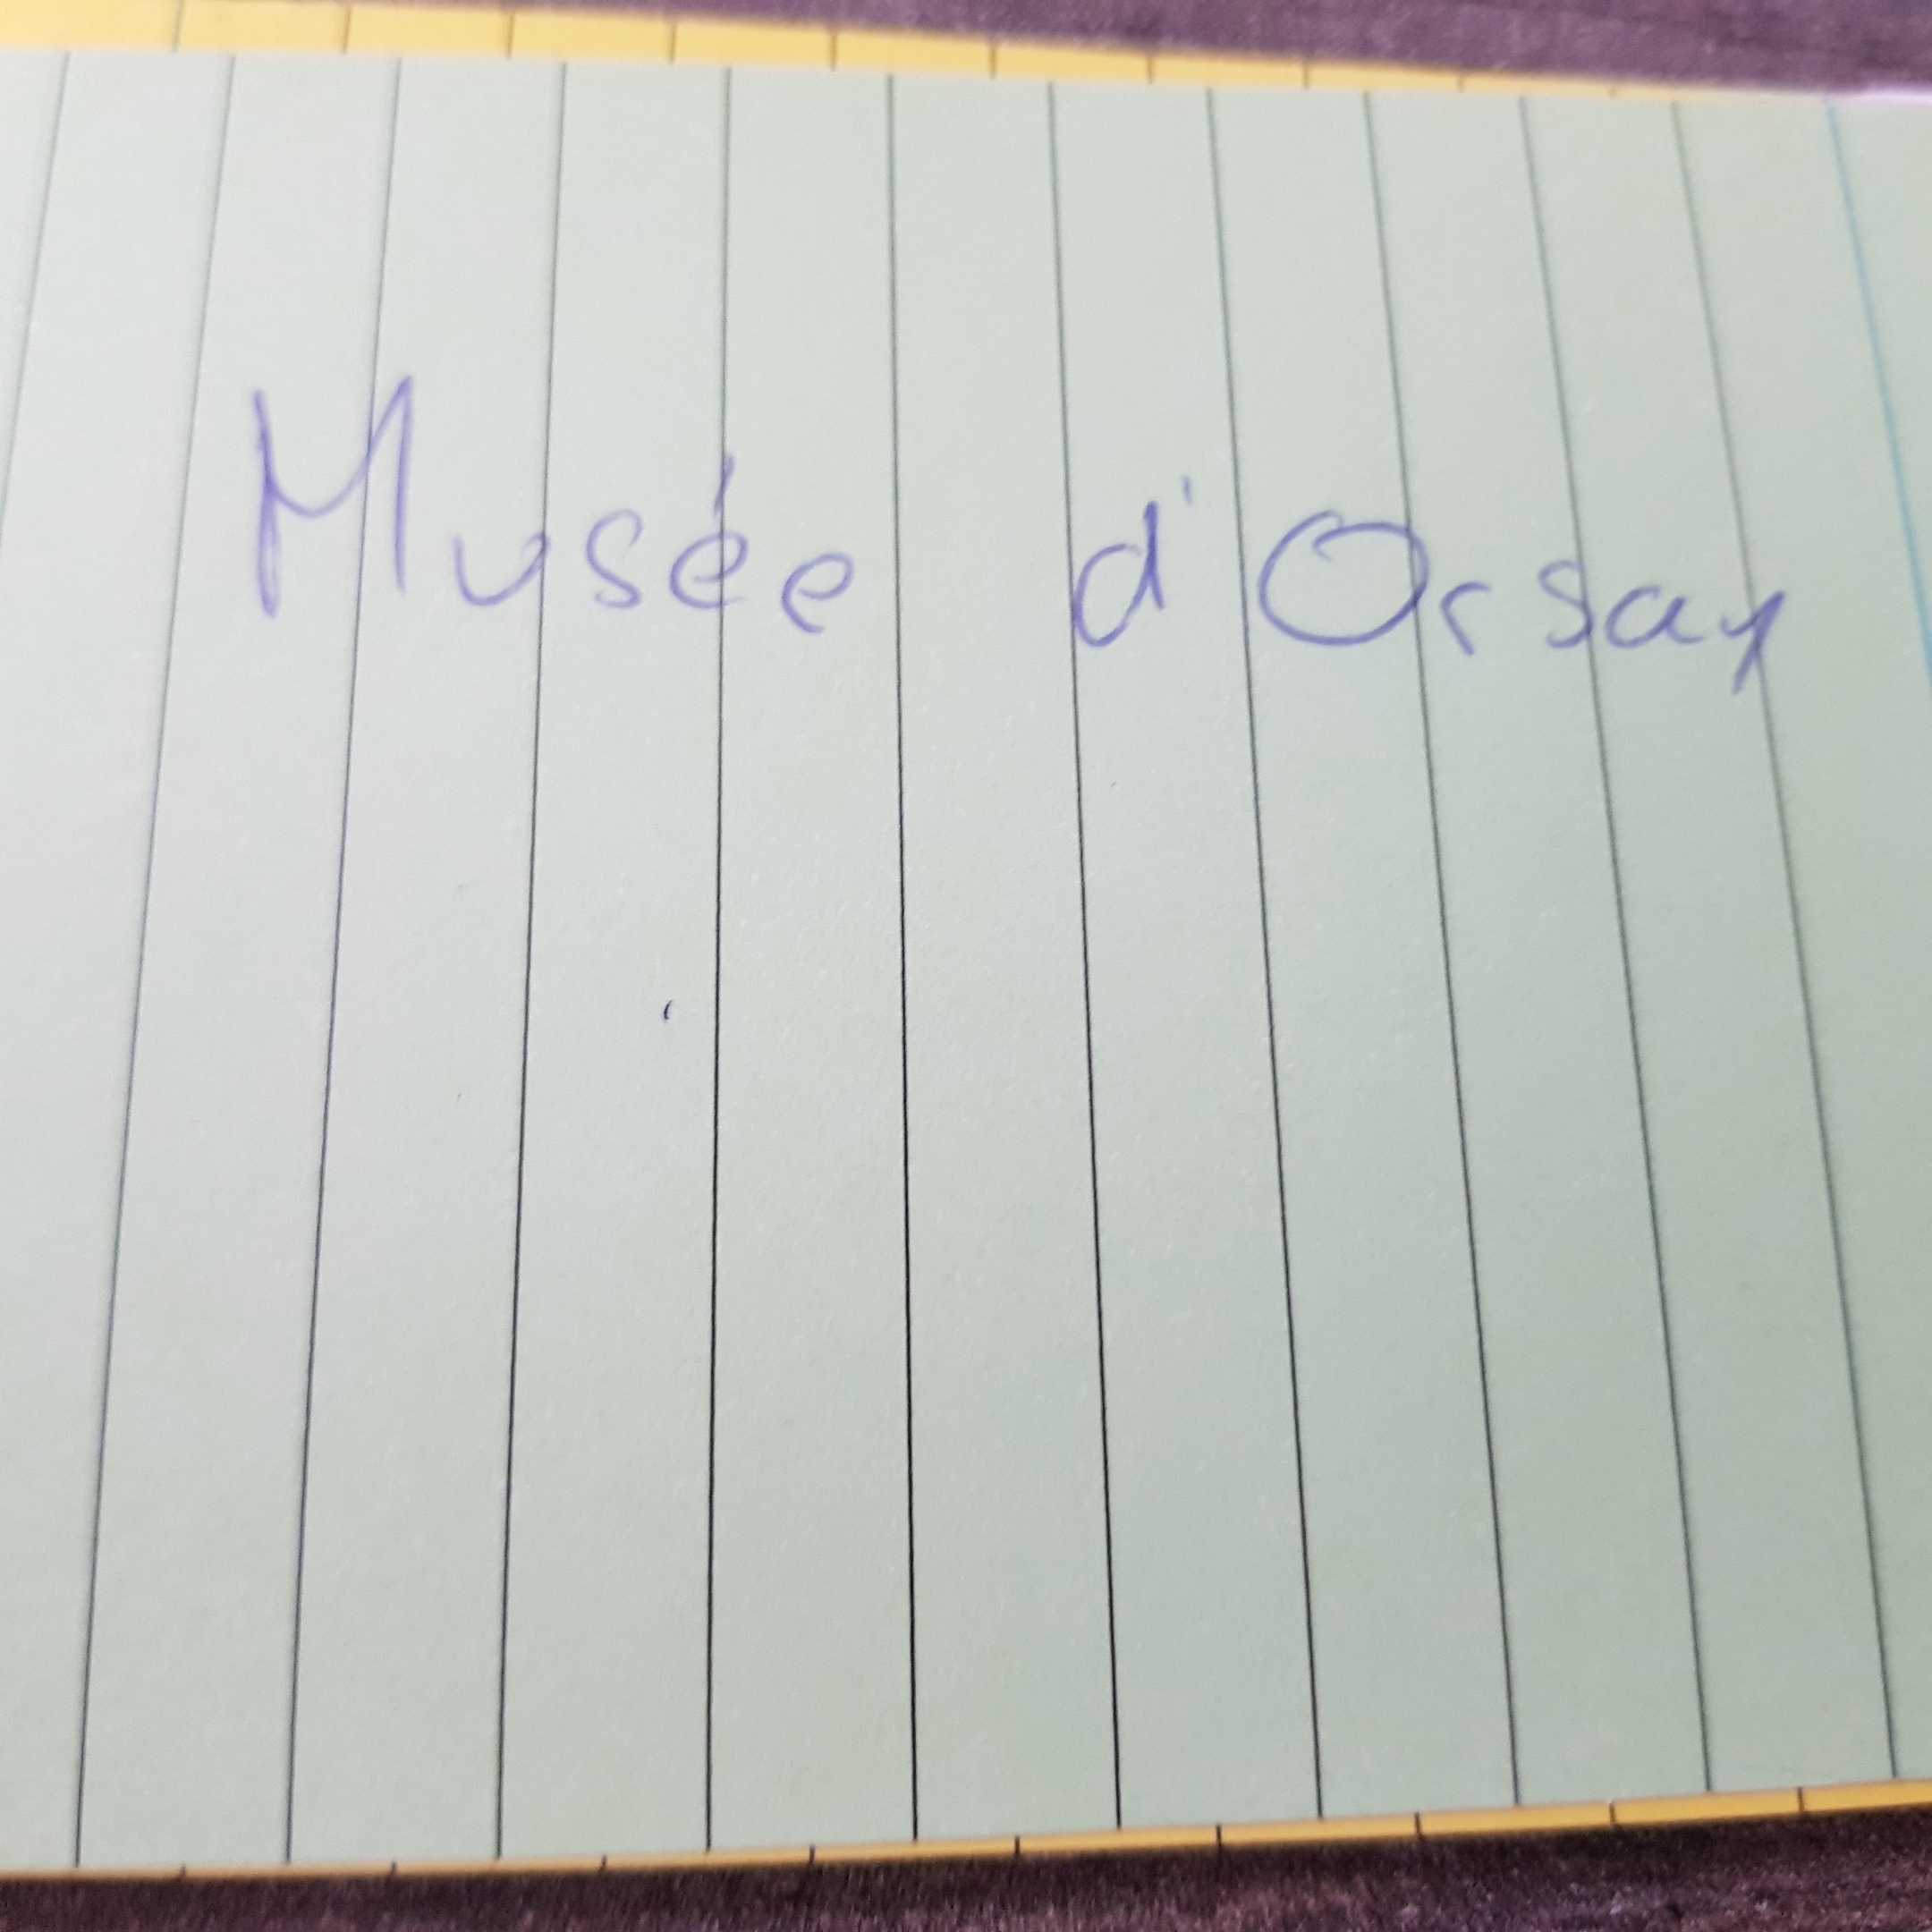 Musée d'Orsay